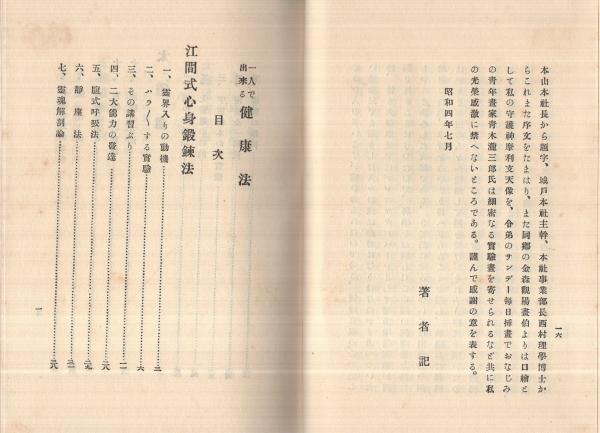 本山本社長から題字、城戸本社主幹、本社事業部長西村理學博士か
らこれまた序文をたまはり、また同郷の金森觀陽畫伯よりは口繪と
して私の守護神摩利支天像を、令弟のサンデー毎日挿畫でおなじみ
の青年畫家青木瀧三郎氏は細密なる實驗畫を寄せられるなど共に私
の光榮感激に禁へないところである。謹んで感謝の意を表する。
昭和四年七月
著者記
一六
一人で出來る 健康法
目次
江間式心身鍛錬法
一、靈界入りの動機……三
二、ハラ〳〵する實驗……六
三、その講習ぶり……一一
四、二大能力の發達……一八
五、腹式呼吸法
六、靜座法
七、靈魂解剖論
一